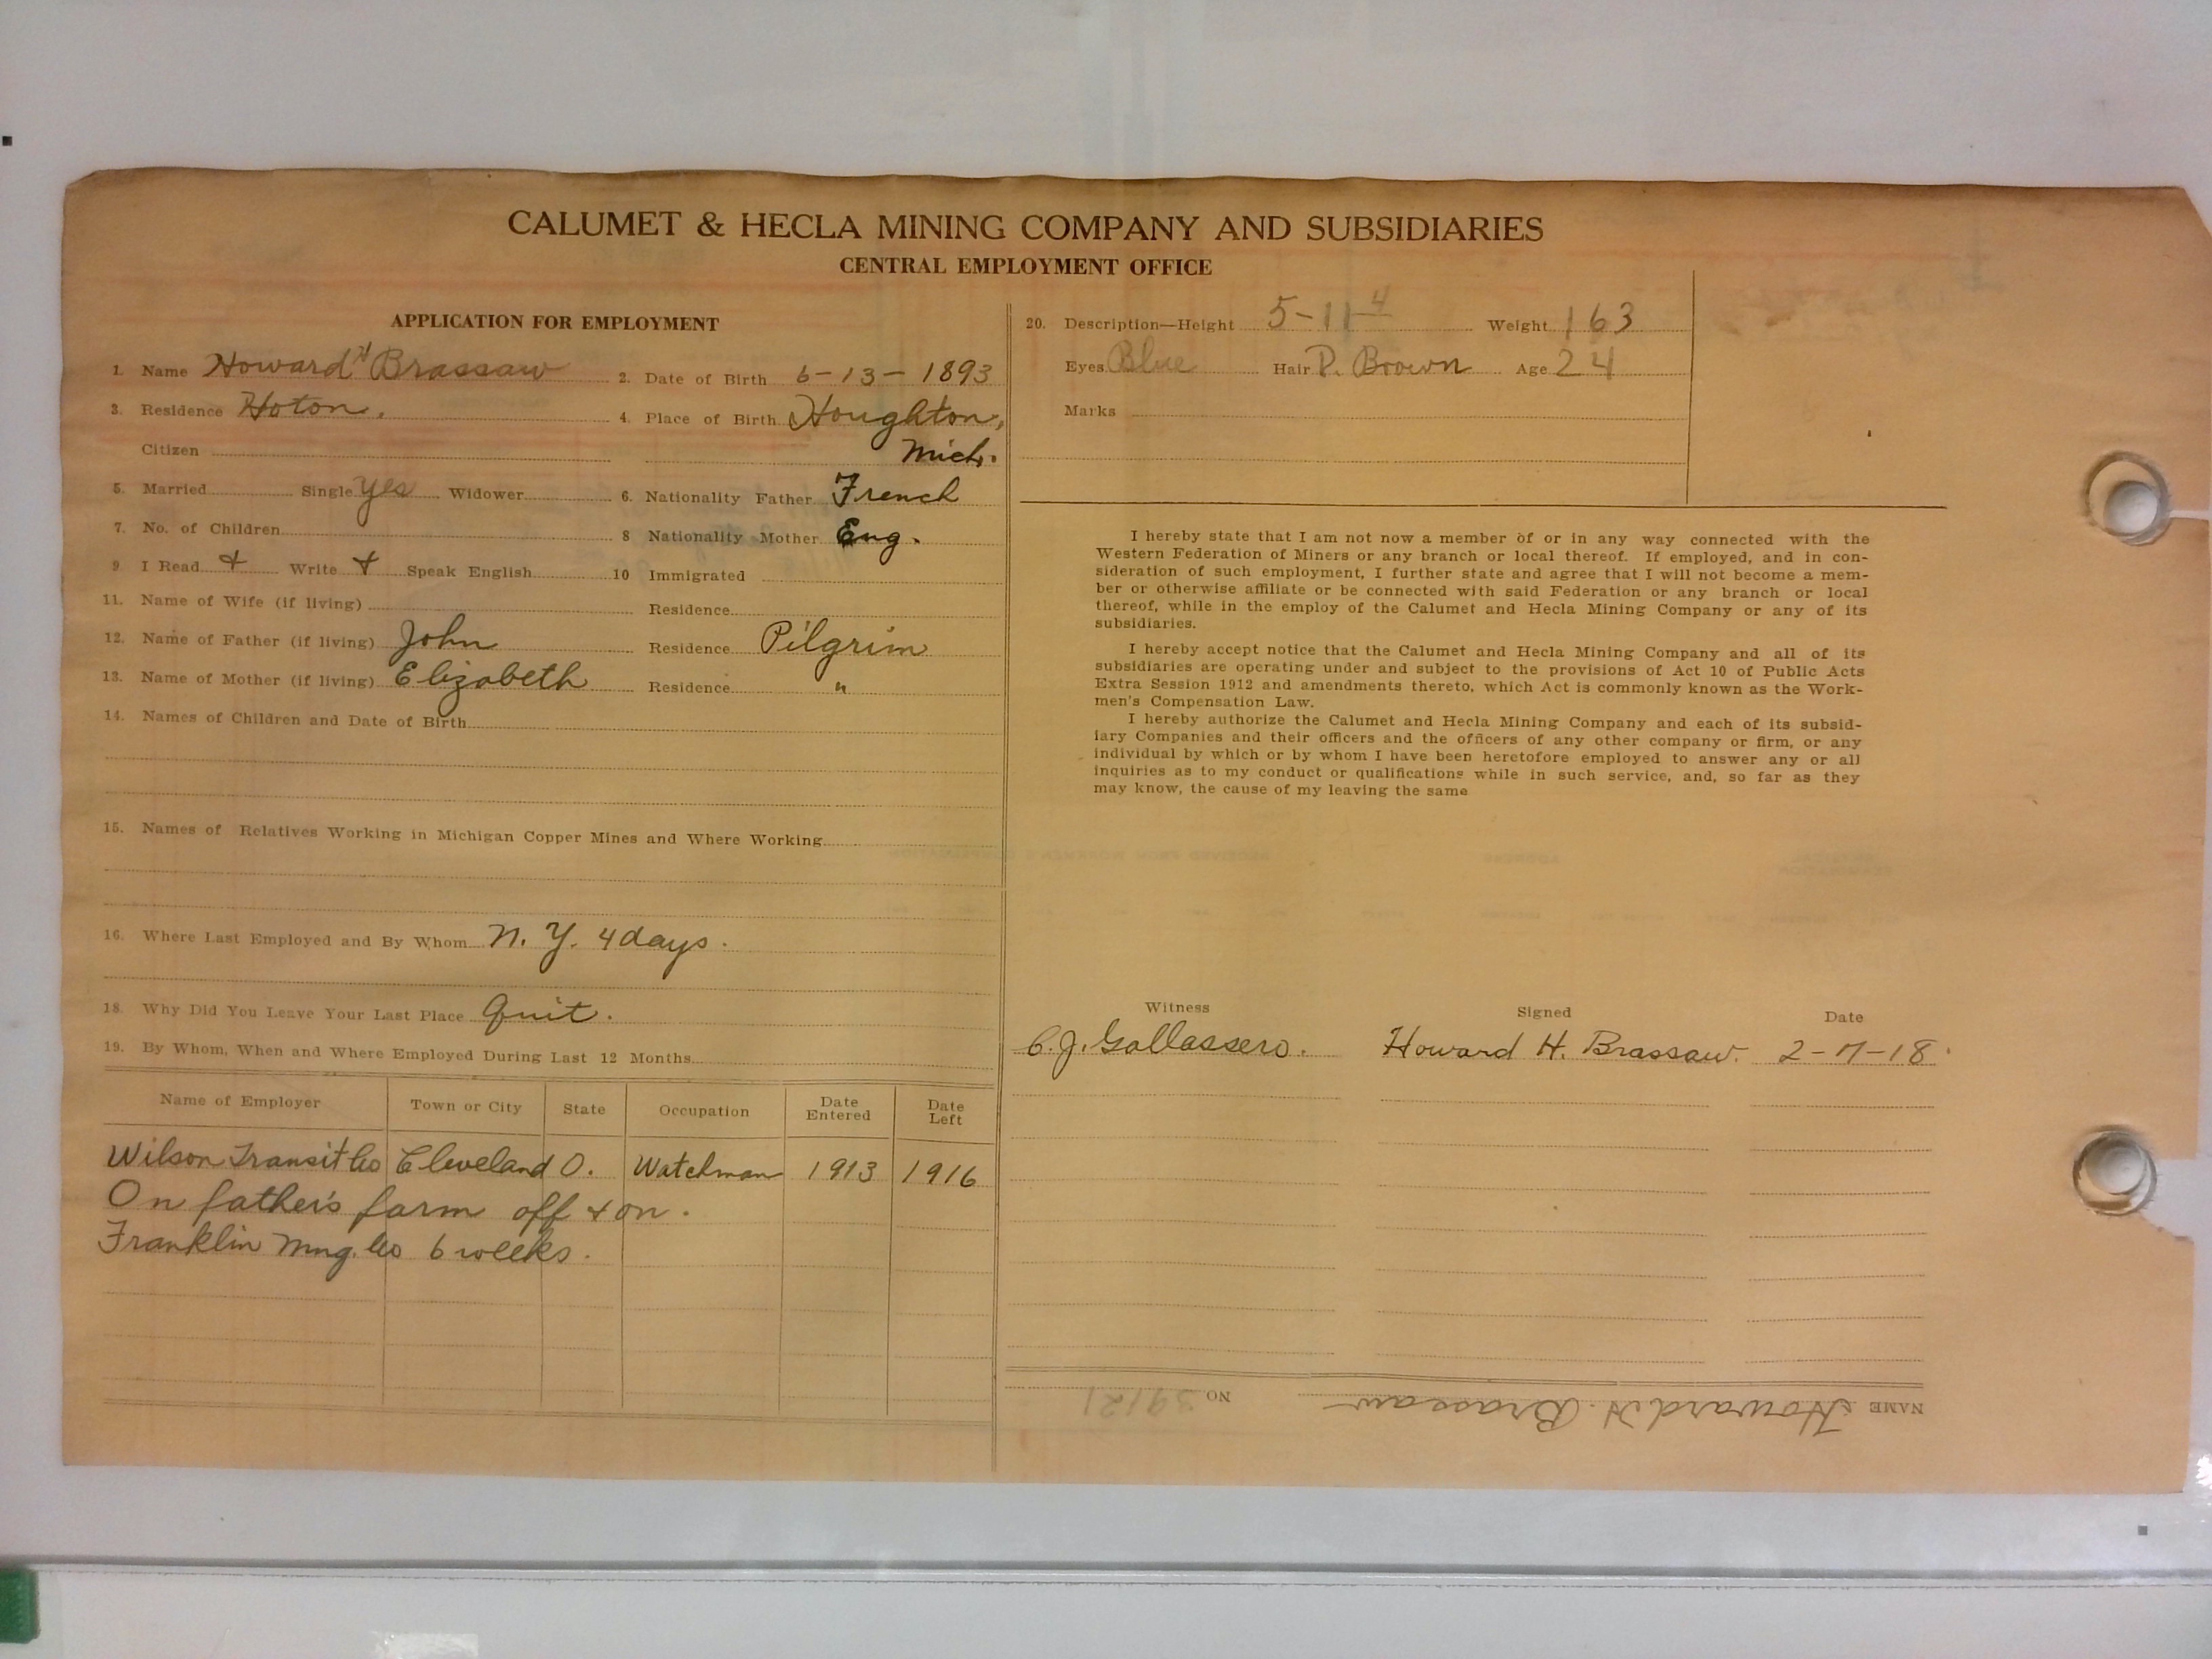 CALUMET & HECLA MINING COMPANY AND SUBSIDIARIES
CENTRAL EMPLOYMENT OFFICE
APPLICATION FOR EMPLOYMENT
1. Name Howard H Brassaw 2. Date of Birth 6-13-1893
3. Residence Hoton. 4. Place of Birth Houghton,
Citizen Mich.
5. Married Single yes Widower 6. Nationality Father French
7. No. of Children 8 Nationality Mother Eng.
9. I Read + Write + Speak English 10 Immigrated
11. Name of Wife (if living) Residence
12. Name of Father (if living) John Residence Pilgrim
13. Name of Mother (if living) Elizabeth Residence "
14. Names of Children and Date of Birth
15. Names of Relatives Working in Michigan Copper Mines and Where Working
16. Where Last Employed and By Whom N. Y. 4 days.
18. Why Did You Leave Your Last Place Quit.
19. By Whom, When and Where Employed During Last 12 Months
Name of Employer Town or City State Occupation Date Entered Date Left
Wilson Transit Co Cleveland O. Watchman 1913 1916
On father's farm off + on.
Franklin Mng. Co 6 weeks.
20. Description—Height 5-11 4 Weight 163
Eyes Blue Hair D. Brown Age 24
Marks
I hereby state that I am not now a member of or in any way connected with the
Western Federation of Miners or any branch or local thereof. If employed, and in con-
sideration of such employment, I further state and agree that I will not become a mem-
ber or otherwise affiliate or be connected with said Federation or any branch or local
thereof, while in the employ of the Calumet and Hecla Mining Company or any of its
subsidiaries.
I hereby accept notice that the Calumet and Hecla Mining Company and all of its
subsidiaries are operating under and subject to the provisions of Act 10 of Public Acts
Extra Session 1912 and amendments thereto, which Act is commonly known as the Work-
men's Compensation Law.
I hereby authorize the Calumet and Hecla Mining Company and each of its subsid-
iary Companies and their officers and the officers of any other company or firm, or any
individual by which or by whom I have been heretofore employed to answer any or all
inquiries as to my conduct or qualifications while in such service, and, so far as they
may know, the cause of my leaving the same
Witness Signed Date
C. J. Gollassero. Howard H. Brassaw. 2-7-18.
NAME Howard H. Brassaw NO 39121